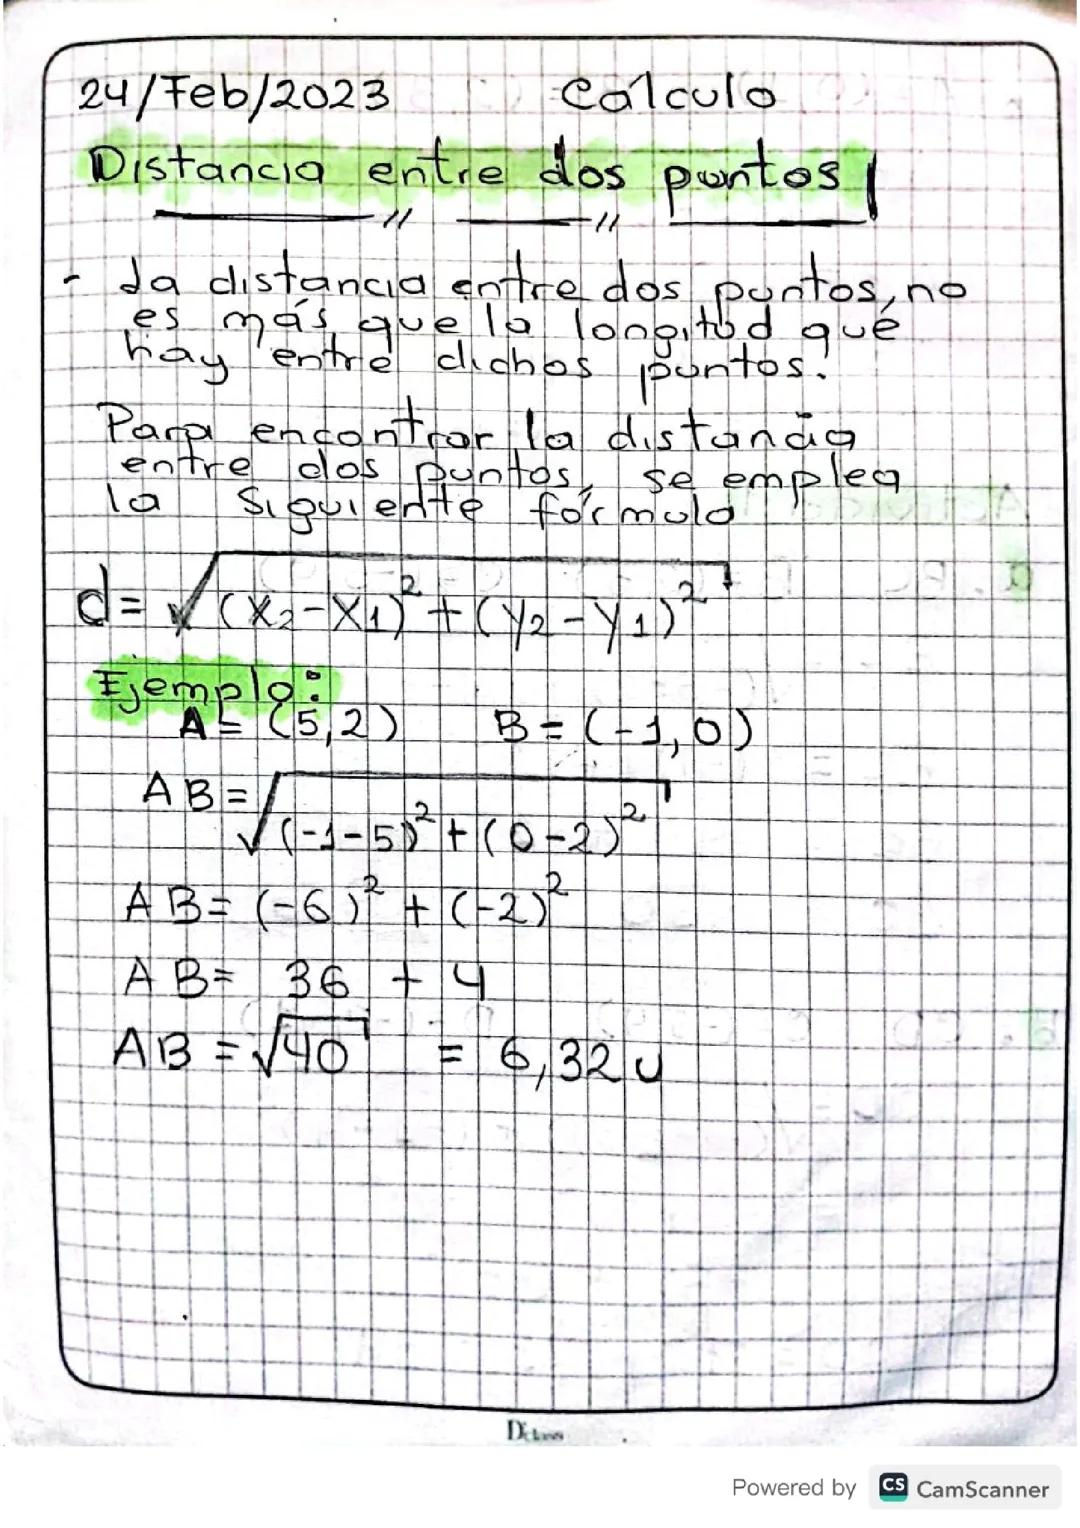 24/Feb/2023 Cálculo
Distancia entre dos puntos
- La distancia entre dos puntos, no
es más que la longitud que
hay entre dichos puntos.
Para encontrar la distancia
entre dos puntos, se emplea
la siguiente fórmula
d= √(x₂-x₁)² + (y₂-y₁)²
Ejemplo:
A= (5,2) B= (-1,0)
AB= √(-1-5)² + (0-2)²
AB= (-6)² + (-2)²
AB= 36 + 4
AB = √40 = 6,32 u
Powered by CS CamScanner